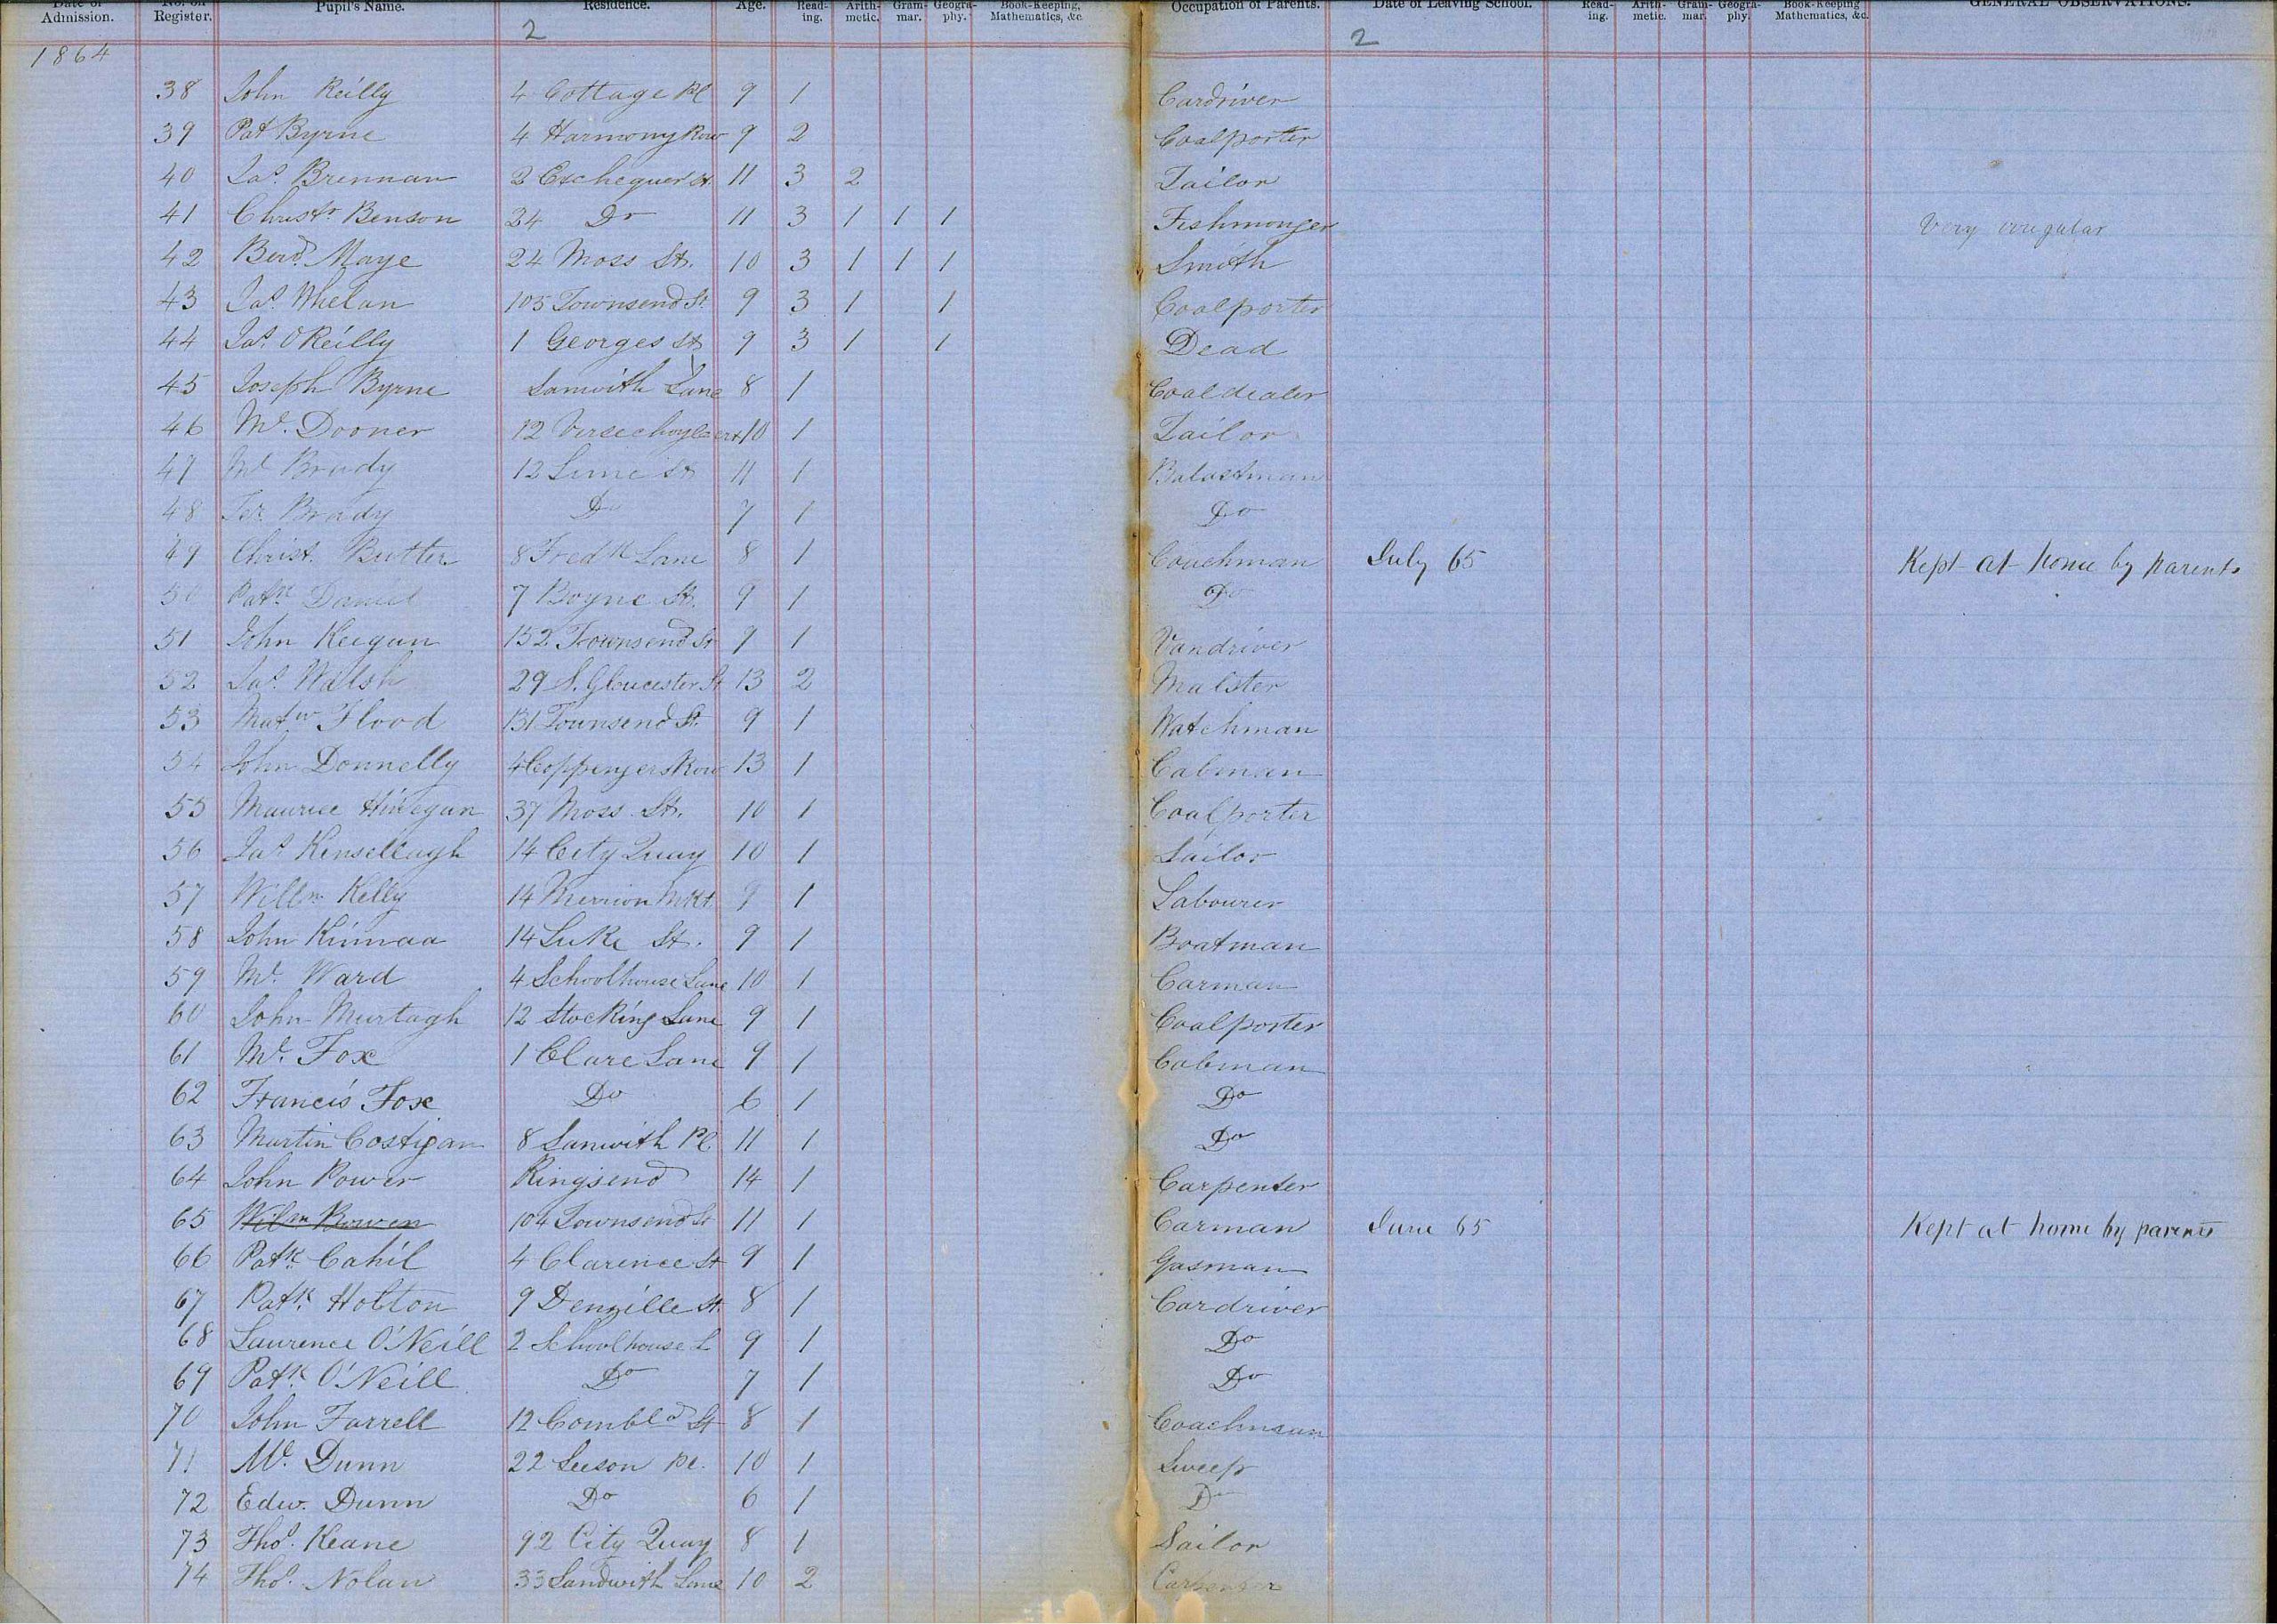 Date of Admission. No. on Register. Pupil's Name. Residence. Age. Read-ing. Arith-metic. Gram-mar. Geogra-phy. Book-Keeping, Mathematics, &c. Occupation of Parents. Date of Leaving School. Read-ing. Arith-metic. Gram-mar. Geogra-phy. Book-Keeping Mathematics, &c. GENERAL OBSERVATIONS.
2 2
1864
38 John Reilly 4 Cottage Pl 9 1 Cardriver
39 Pat Byrne 4 Harmony Row 9 2 Coalporter
40 Jas. Brennan 2 Exchequer St. 11 3 2 Tailor
41 Christr Benson 24 Do 11 3 1 1 1 Fishmonger Very irregular
42 Berd. Maye 24 Moss St. 10 3 1 1 1 Smith
43 Jas. Whelan 105 Townsend St. 9 3 1 1 Coalporter
44 Jas. O Reilly 1 Georges St 9 3 1 1 Dead
45 Joseph Byrne Sanwith Lane 8 1 Coaldealer
46 Ml. Dooner 12 10 1 Tailor
47 Ml Brady 12 Lime St 11 1 Balastman
48 Ter. Brady Do 7 1 Do
49 Christ. Butler 8 Fredk Lane 8 1 Coachman July 65 Kept at home by parents
50 Patk. Daniel 7 Boyne St. 9 1 Do
51 John Keegan 152 Townsend St 9 1 Vandriver
52 Jas. Walsh 29 S. Gloucester St 13 2 Malster
53 Matw Flood 131 Townsend St. 9 1 Watchman
54 John Donnelly 4 Coppingers Row 13 1 Cabman
55 Maurice 37 Moss St. 10 1 Coalporter
56 Jas. Kensellagh 14 City Quay 10 1 Sailor
57 Willm Kelly 14 Merrion Mkt 9 1 Labourer
58 John Kinnaa 14 Luke St. 9 1 Boatman
59 Ml. Ward 4 Schoolhouse Lane 10 1 Carman
60 John Murtagh 12 Stocking Lane 9 1 Coalporter
61 Ml. Fox 1 Clare Lane 9 1 Cabman
62 Francis Fox Do 6 1 Do
63 Martin Costigan 8 Sanwith Pl 11 1 Do
64 John Power Ringsend 14 1 Carpenter
65 Wilm Bowen 104 Townsend St 11 1 Carman June 65 Kept at home by parents
66 Patk. Cahil 4 Clarence St 9 1 Gasman
67 Patk. Holton 9 Denzille St. 8 1 Cardriver
68 Laurence O'Neill 2 Schoolhouse L 9 1 Do
69 Patk. O'Neill Do 7 1 Do
70 John Farrell 12 Combld St 8 1 Coachman
71 Ml. Dunn 22 Leeson Pl. 10 1 Sweep
72 Edw. Dunn Do 6 1 Do
73 Thos. Keane 92 City Quay 8 1 Sailor
74 Thos. Nolan 33 Sandwith Lane 10 2 Carpenter